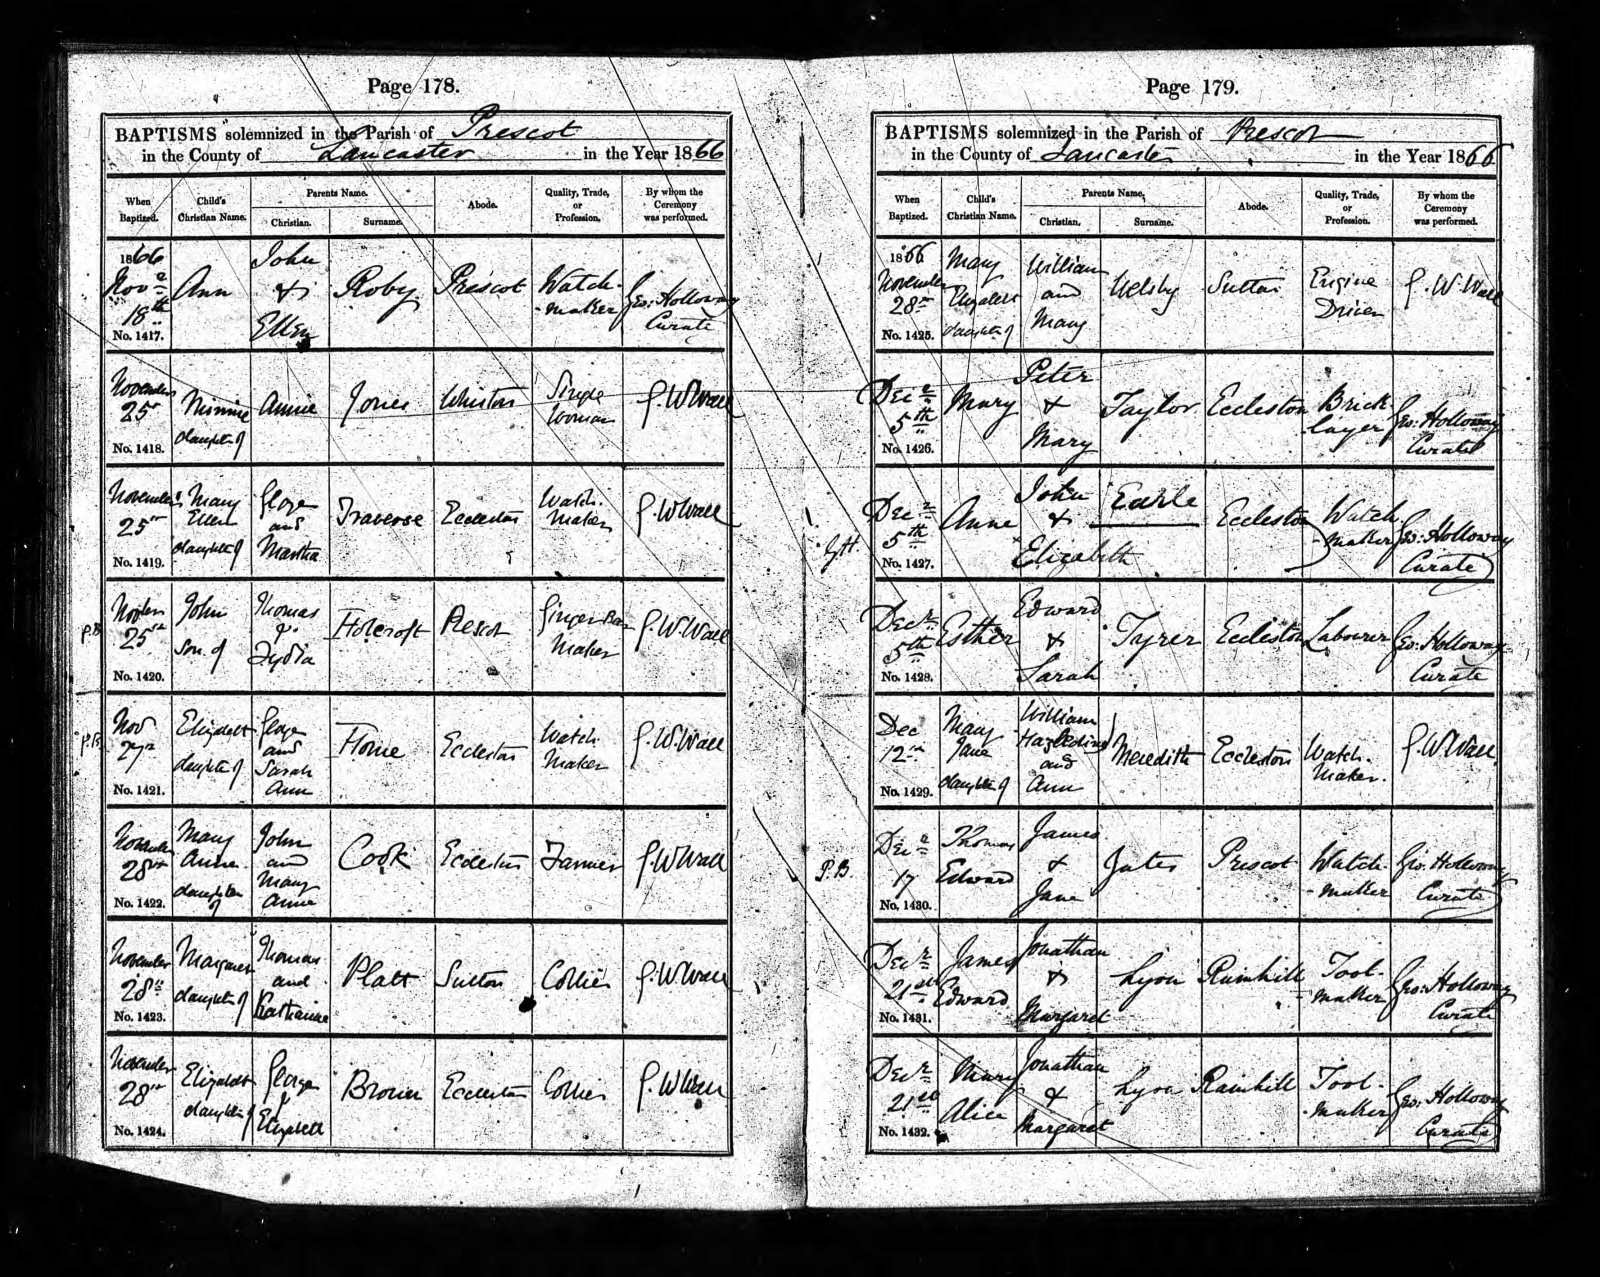 Page 178.
BAPTISMS solemnized in the Parish of Prescot
in the County of Lancaster in the Year 1866
When Baptized.
Child's Christian Name.
Parents Name.
Christian.
Surname.
Abode.
Quality, Trade, or Profession.
By whom the Ceremony was performed.
1866
Nov 18th
No. 1417.
Ann
John & Ellen
Roby
Prescot
Watch-maker
Geo: Holloway Curate
November 25
No. 1418.
Minnie daughter of
Annie
Jones
Whiston
Single Woman
November 25
No. 1419.
Mary Ellen daughter of
George and Martha
Traverse
Eccleston
Watch Maker
25
No. 1420.
John Son of
Thomas & Lydia
Holcroft
Prescot
Ginger Beer Maker
P.B.
Nov 27
No. 1421.
Elizabeth daughter of
George and Sarah Ann
Horne
Eccleston
Watch Maker
P.B.
November 28
No. 1422.
Mary Anne daughter of
John and Mary Anne
Cook
Eccleston
Farmer
November 28
No. 1423.
Margaret daughter of
Thomas and Katharine
Platt
Sutton
Collier
November 28
No. 1424.
Elizabeth daughter of
George & Elizabeth
Brown
Eccleston
Collier
Page 179.
BAPTISMS solemnized in the Parish of Prescot
in the County of Lancaster in the Year 1866
When Baptized.
Child's Christian Name.
Parents Name.
Christian.
Surname.
Abode.
Quality, Trade, or Profession.
By whom the Ceremony was performed.
1866
November 28
No. 1425.
Mary Elizabeth daughter of
William and Mary
Welsby
Sutton
Engine Driver
Dec 5th
No. 1426.
Mary
Peter & Mary
Taylor
Eccleston
Brick-layer
Geo: Holloway Curate
Dec 5th
No. 1427.
Anne
John & Elizabeth
Earle
Eccleston
Watch-maker
Geo: Holloway Curate
G.H.
Decr 5th
No. 1428.
Esther
Edward & Sarah
Tyrer
Eccleston
Labourer
Geo: Holloway Curate
Dec 12
No. 1429.
Mary Jane daughter of
William and Ann
Meredith
Eccleston
Watch Maker.
Dec 17
No. 1430.
Thomas Edward
James & Jane
Prescot
Watch-maker
Geo: Holloway Curate
P.B.
Decr 21st
No. 1431.
James Edward
Jonathan & Margaret
Lyon
Rainhill
Tool-maker
Geo: Holloway Curate
Decr 21st
No. 1432.
Mary Alice
Jonathan & Margaret
Lyon
Rainhill
Tool-maker
Geo: Holloway Curate